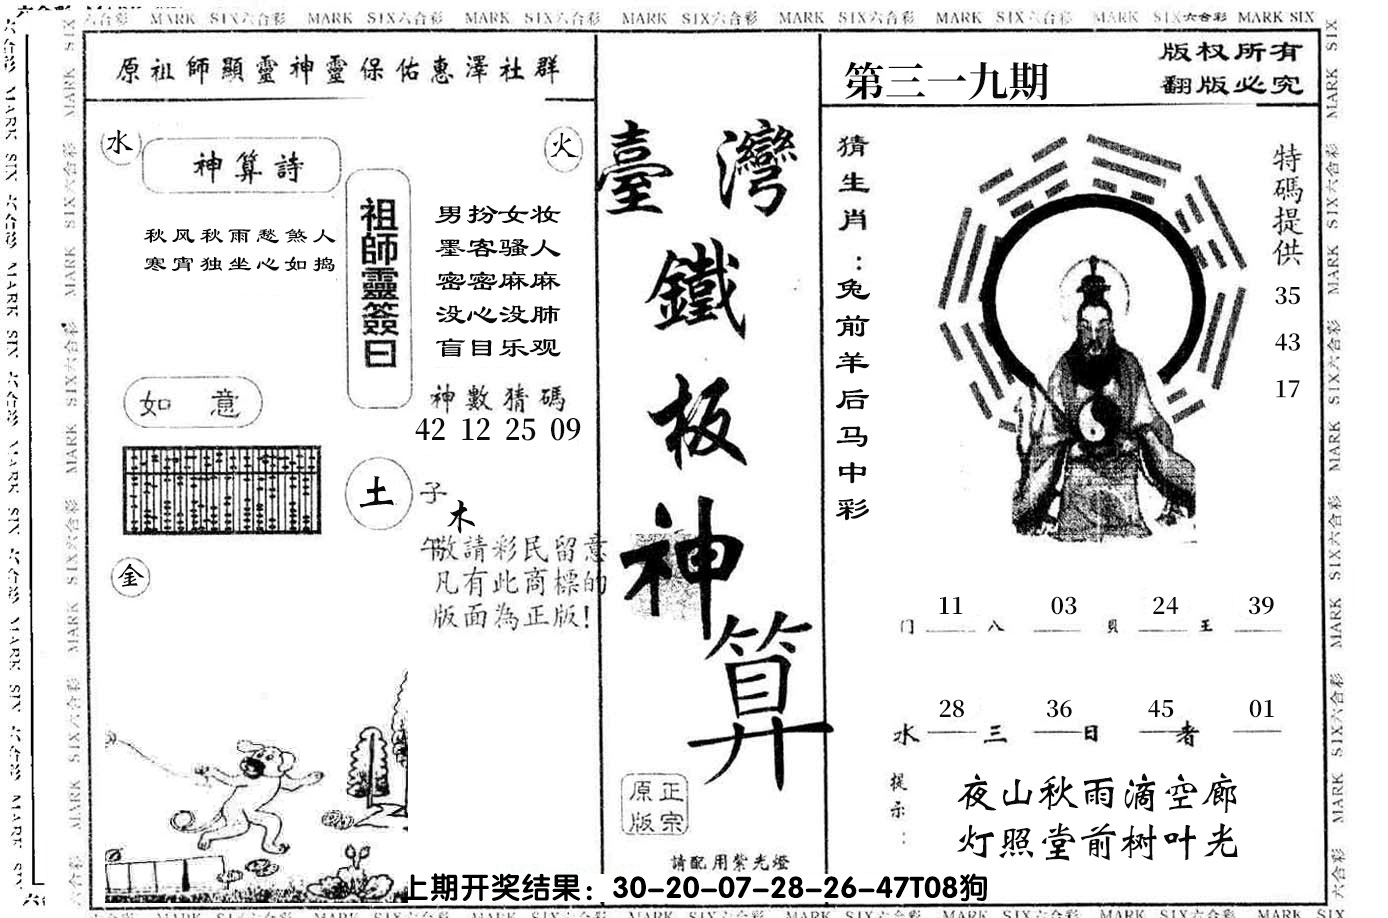 MARK SIX六合彩 MARK SIX六合彩 MARK SIX六合彩 MARK SIX六合彩 MARK SIX六合彩 MARK SIX六合彩 MARK SIX六合彩 MARK SIX
原祖師顯靈神靈保佑惠澤社群
水
神算詩
火
秋风秋雨愁煞人
寒宵独坐心如捣
祖師靈簽曰
男扮女妆
墨客骚人
密密麻麻
没心没肺
盲目乐观
如意
神數猜碼
42 12 25 09
土
子
木
午
敬請彩民留意
凡有此商標的
版面為正版!
金
臺灣
鐵
板
神
算
原正
版宗
請配用紫光燈
第三一九期
版权所有
翻版必究
猜生肖：兔前羊后马中彩
特碼提供
35
43
17
11 03 24 39
门 八 貝 王
28 36 45 01
水 三 日 者
提示：
夜山秋雨滴空廊
灯照堂前树叶光
上期开奖结果：30-20-07-28-26-47T08狗